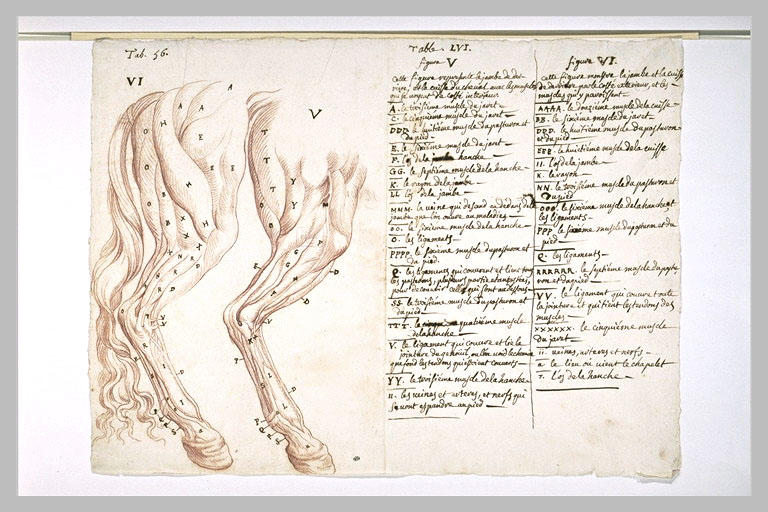 Tab. 56.
VI
V
Table. LVI.
figure V
Cette figure represente la jambe de der-
riere, de la cuisse du cheval avec les muscles
qui se voyent du costé interieur
A. le troisiesme muscle du jaret
C. le cinquiesme muscle du jaret
DDD. le huitiesme muscle du pasturon et
du pied.
E. le sixiesme muscle du jaret
F. l'os de la hanche
GG. le septiesme muscle de la hanche
K. le rayon de la jambe
LL l'os de la jambe
MMM. la veine qui descend au dedans de la
jambe que l'on ouvre au maladies
OO. le sixieme muscle de la hanche
O. les ligaments
PPPP. le sixieme muscle du pasturon et
du pied.
Q. les ligaments qui couvrent et lient tous
les pasturons, plusieurs
pour decouvrir celles qui sont au dessous
SS. le troisieme muscle du pasturon et
du pied
TTT. le quatrieme muscle
de la hanche
V. le ligament qui couvre et lie la
jointure du genouil,
que sont les tendons qui estoient couverts
YY. le troisiesme muscle de la hanche
II. les veines et arteres, et nerfs qui
se vont espandre au pied
figure VI.
Cette figure monstre la jambe et la cuisse
de derriere par le costé exterieur, et les
muscles qui y paroissent
AAAA. le onzieme muscle de la cuisse
BB. le sixieme muscle du jaret
DDD. le huitieme muscle du pasturon
et du pied
EEE. le huitieme muscle de la cuisse
II. l'os de la jambe
K. le rayon
NN. le troisieme muscle du pasturon et
du pied
OOO. le sixieme muscle de la hanche et
les ligaments
PPP. le sixieme muscle du pasturon et du
pied
Q. les ligaments
RRRRRR. le septieme muscle du pastu
ron et du pied
VV. le ligament qui couvre et lie
la jointure et qui tient les tendons des
muscles
XXXXXX. le cinquieme muscle
du jaret
ii. veines, arteres et nerfs
a le lieu où vient le chapelet
T. l'os de la hanche